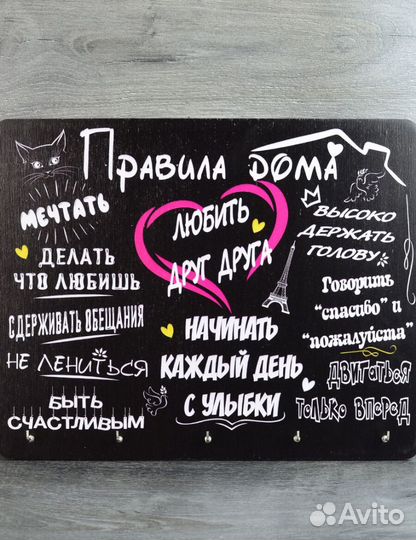 Правила дома
МЕЧТАТЬ
ДЕЛАТЬ
ЧТО ЛЮБИШЬ
СДЕРЖИВАТЬ ОБЕЩАНИЯ
НЕ ЛЕНИТЬСЯ
БЫТЬ
СЧАСТЛИВЫМ
ЛЮБИТЬ
ДРУГ ДРУГА
НАЧИНАТЬ
КАЖДЫЙ ДЕНЬ
С УЛЫБКИ
ВЫСОКО
ДЕРЖАТЬ
ГОЛОВУ
Говорить
"спасибо" и
"пожалуйста"
ДВИГАТЬСЯ
ТОЛЬКО ВПЕРЕД
Avito